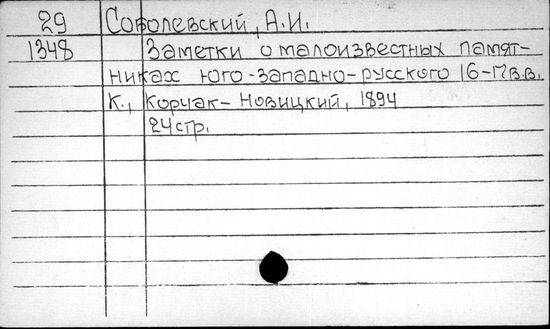 29 Соболевский, А.И.
1348 Заметки о малоизвестных памят-
никах юго-западно-русского 16-17 в.в.
К., Корчак-Новицкий, 1894
24 стр.